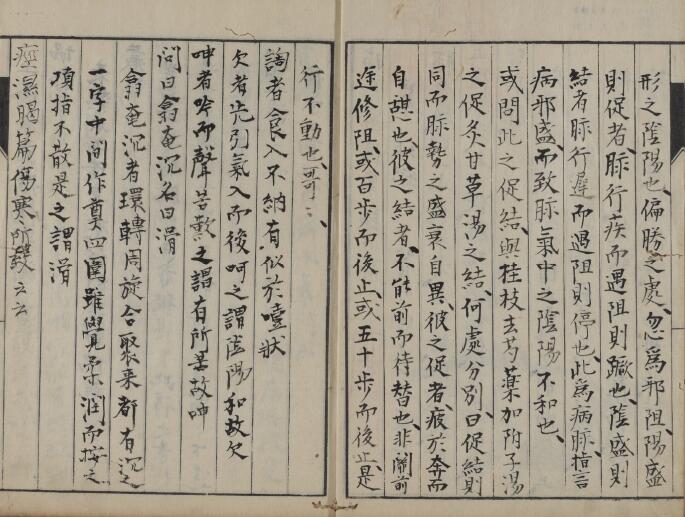 形之陰陽也偏勝之處忽爲邪阻陽盛
則促者脉行疾而遇阻則蹶也陰盛則
結者脉行遲而遇阻則停也此爲病脉指言
病邪盛而致脉氣中之陰陽不和也
或問此之促結與桂枝去芍藥加附子湯
之促炙甘草湯之結何處分別曰促結則
同而脉勢之盛衰自異彼之促者疲於奔而
自憩也彼之結者不能前而待替也非關前
途修阻或百步而後止或五十步而後止是
行不動也
謁者食入不納有似於噎狀
欠者先引氣入而後呵之謂陰陽和故欠
呻者吟而聲苦歎之謂有所苦故呻
問曰翕奄沉名曰滑
翕奄沉者環轉周旋合聚来都有沉之
一字中间作奠四圍雖覺柔潤而按之
項指不散是之謂滑
痙濕暍篇傷寒所致云云